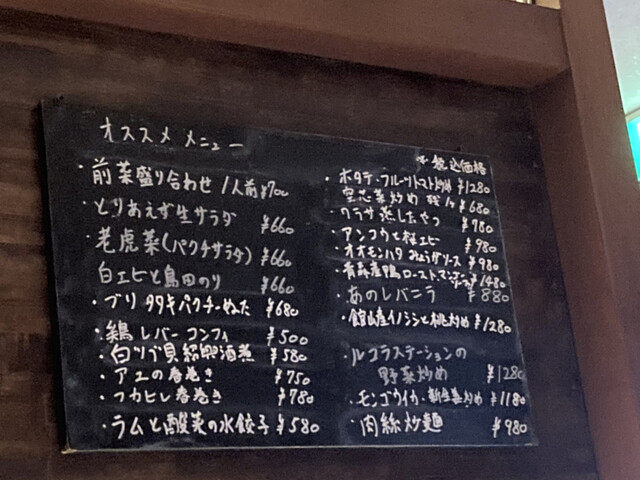 オススメ メニュー
※税込価格
・前菜盛り合わせ 1人前 ¥700
・とりあえず生サラダ ¥660
・老虎菜(パクチサラダ) ¥660
白エビと島田のり ¥660
・ブリ タタキパクチーぬた ¥680
・鶏レバーコンフィ ¥500
・白ツブ貝 紹興酒煮 ¥580
・アユの春巻き ¥750
・フカヒレ春巻き ¥780
・ラムと酸菜の水餃子 ¥580
・ホタテ・フルーツトマト炒め ¥1280
・空芯菜炒め ¥680
・ワラサ蒸したやつ ¥780
・アンコウと桜エビ ¥980
・オオモンハタ みょうがソース ¥980
・青森産鴨ロースト、マンゴーソース ¥1480
・あのレバニラ ¥880
・館山産イノシシと桃炒め ¥1280
・ルコラステーションの
野菜炒め ¥1280
・モンゴウイカ・新生姜炒め ¥1180
・肉絲炒麺 ¥980